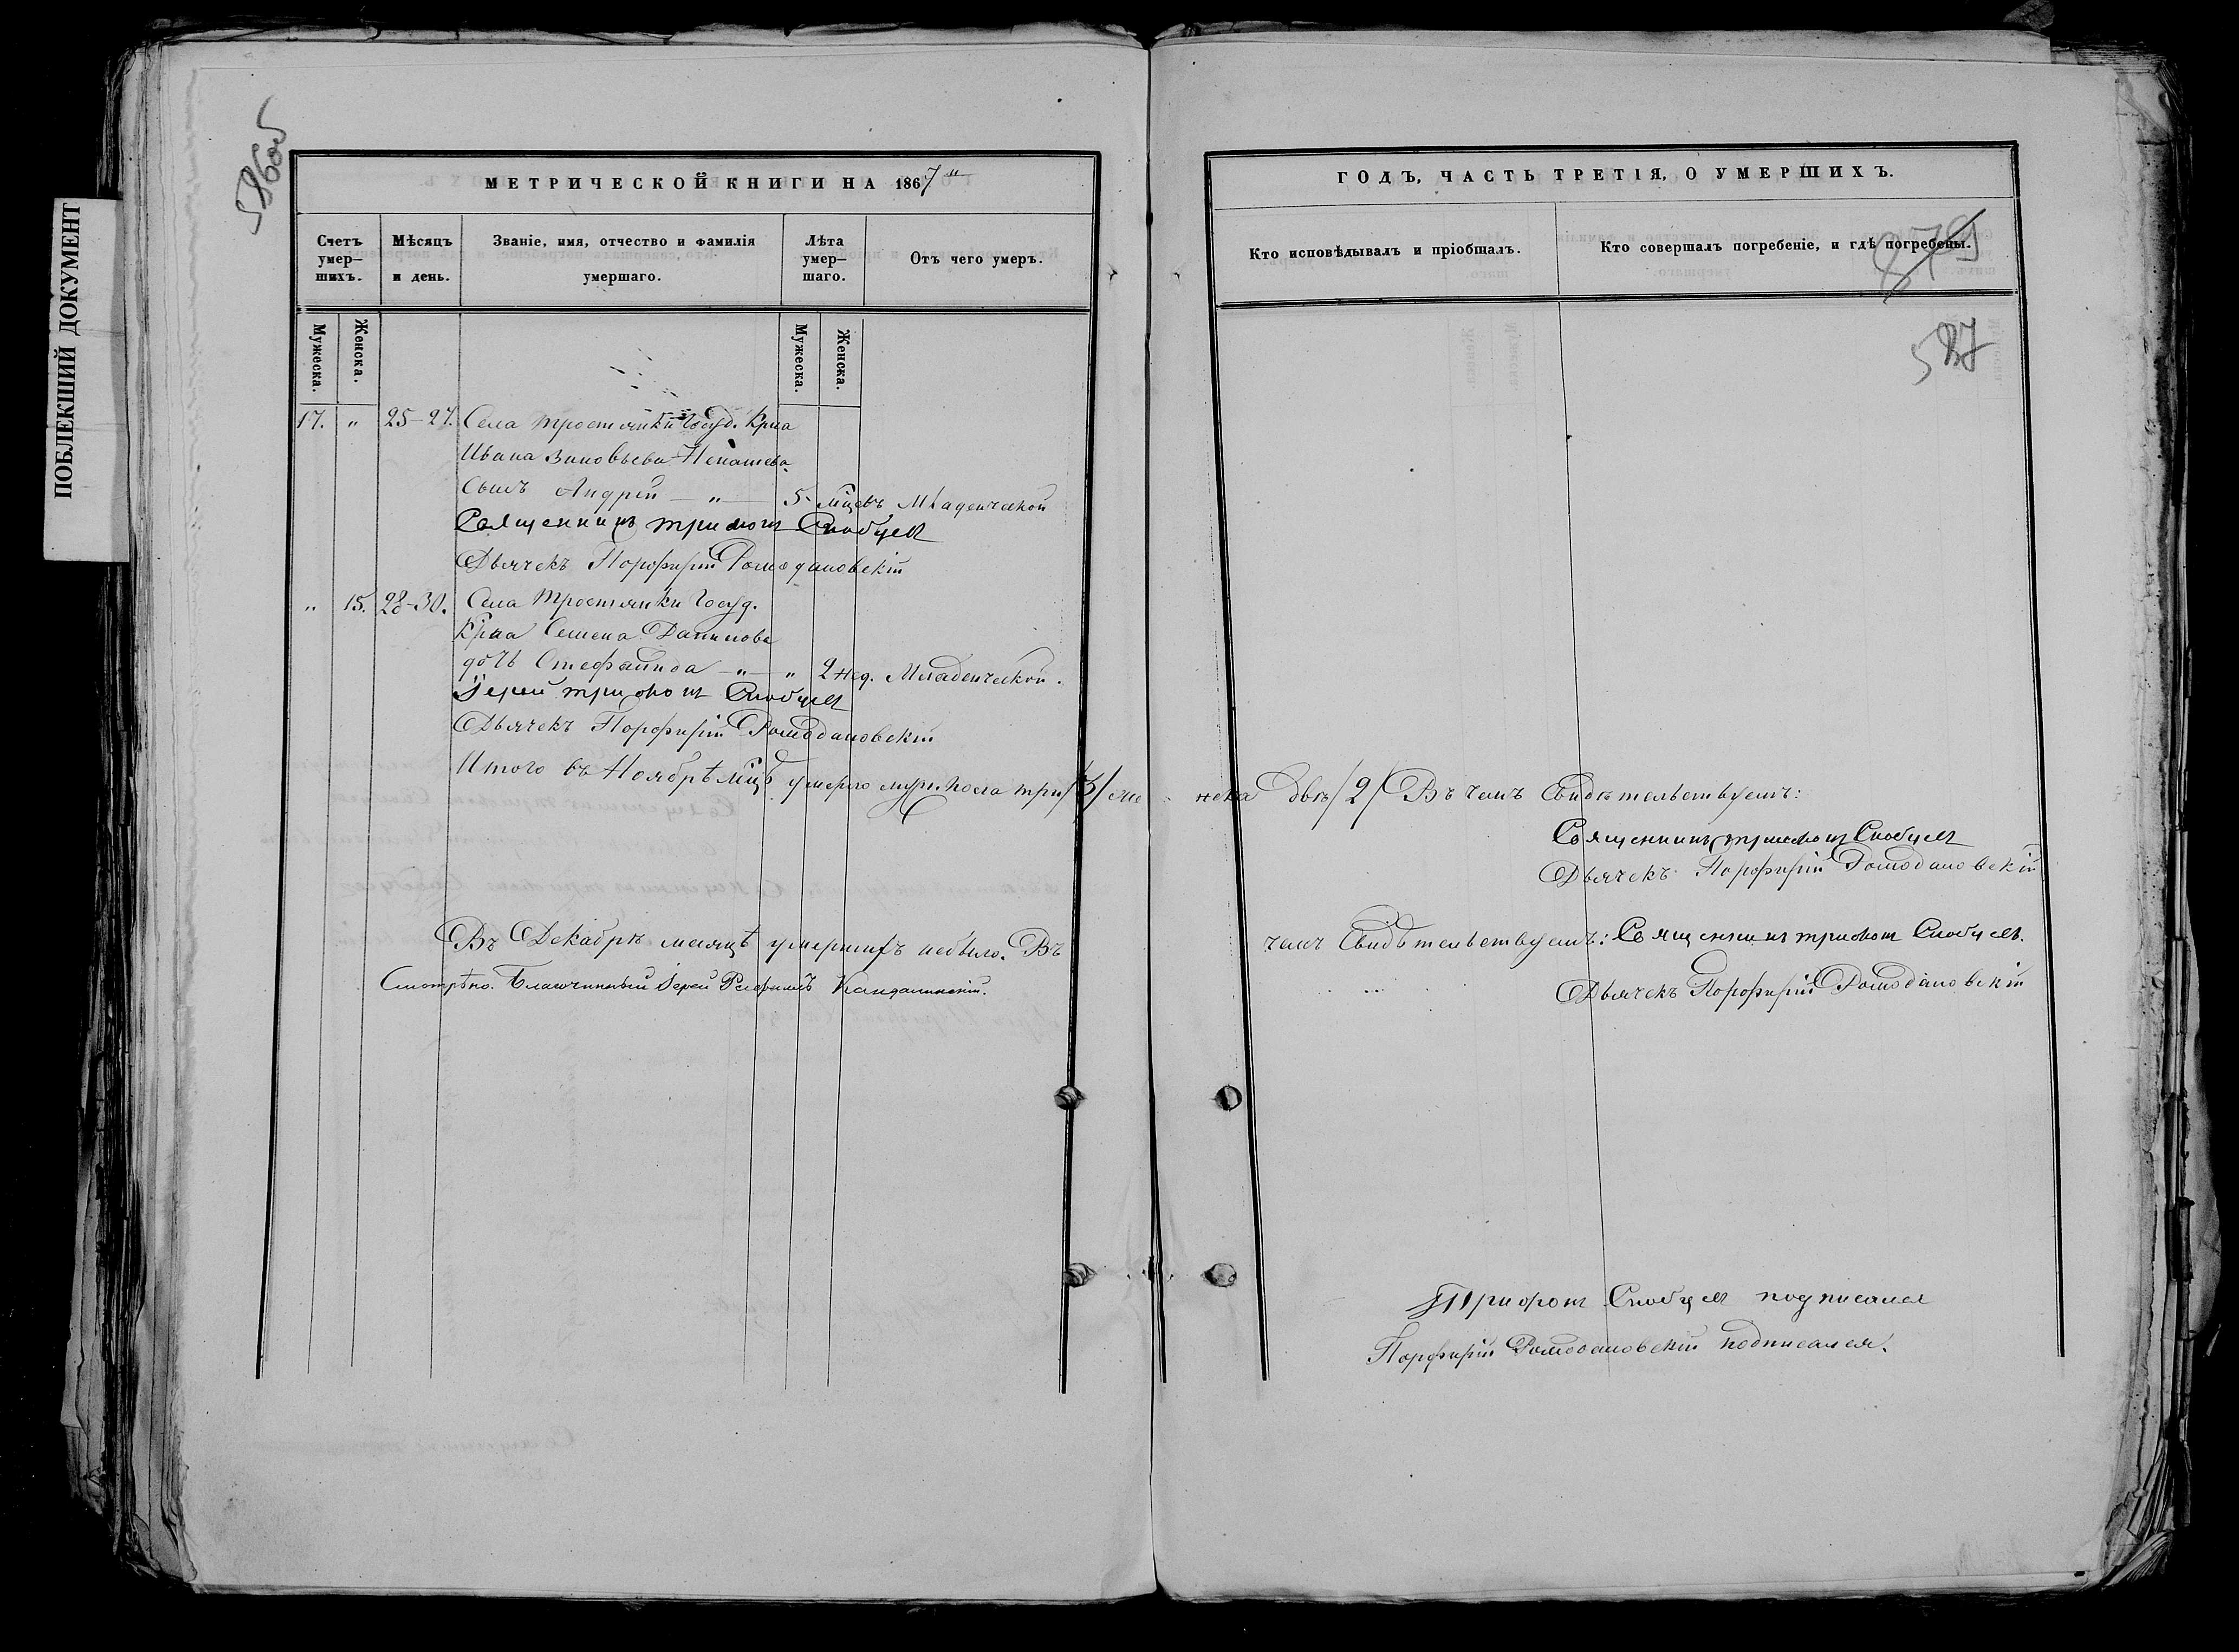 ПОБЛЕКШИЙ ДОКУМЕНТ
586об
МЕТРИЧЕСКОЙ КНИГИ НА 1867й
Счетъ умер- шихъ.
Мѣсяцъ и день.
Званіе, имя, отчество и фамилія умершаго.
Лѣта умер- шаго.
Отъ чего умеръ.
Мужеска.
Женска.
Мужеска.
Женска.
17. " 25-27. Села Тростянки Госуд. Крна
Ивана Зиновьева Ненашева
сынъ Андрей — " — 5 мцевъ Младенческой
Священникъ Трифонъ
Дьячекъ Порфирій Ромодановскій
" 15. 28-30. Села Тростянки Госуд.
Крна Семена Данилова
дочь Стефанида — " — " 2 нед. Младенческой.
Іерей Трифонъ
Дьячекъ Порфирій Ромодановскій
Итого въ Ноябрѣ мцѣ умерло муж. пола три /3/ же
Въ Декабрѣ месяцѣ умершихъ небыло. Въ
Смотрѣно. Благочинный Іерей Кандалинскій.
ГОДЪ, ЧАСТЬ ТРЕТІЯ, О УМЕРШИХЪ.
Кто исповѣдывалъ и пріобщалъ.
Кто совершалъ погребеніе, и гдѣ погребены.
587
нска двѣ /2/ Въ чемъ Свидѣтельствуемъ:
Священникъ Трифонъ
Дьячекъ Порфирій Ромодановскій
чемъ Свидѣтельствуемъ: Священникъ Трифонъ
Дьячекъ Порфирій Ромодановскій
Трифонъ подписался
Порфирій Ромодановскій подписался.